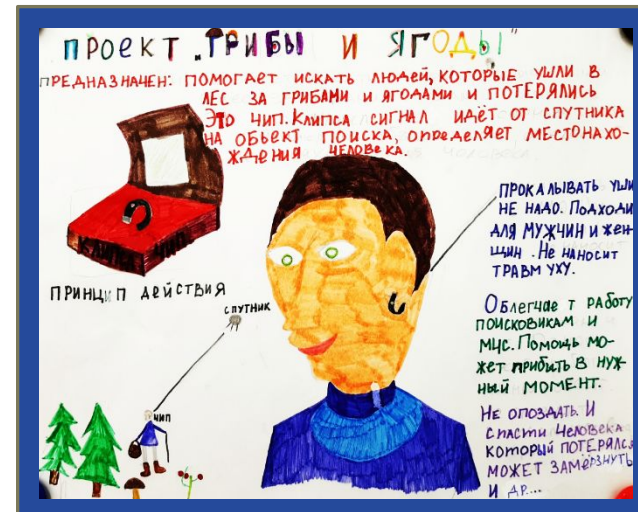 ПРОЕКТ „ГРИБЫ И ЯГОДЫ"
ПРЕДНАЗНАЧЕН: ПОМОГАЕТ ИСКАТЬ ЛЮДЕЙ, КОТОРЫЕ УШЛИ В
ЛЕС ЗА ГРИБАМИ И ЯГОДАМИ И ПОТЕРЯЛИСЬ
ЭТО ЧИП. КЛИПСА СИГНАЛ ИДЁТ ОТ СПУТНИКА
НА ОБЬЕКТ ПОИСКА, ОПРЕДЕЛЯЕТ МЕСТОНАХО-
ЖДЕНИЯ ЧЕЛОВЕКА.
ПРИНЦИП ДЕЙСТВИЯ
СПУТНИК
ЧИП
ПРОКАЛЫВАТЬ УШИ
НЕ НАДО. ПОДХОДИ
ДЛЯ МУЖЧИН И ЖЕН-
ЩИН. НЕ НАНОСИТ
ТРАВМ УХУ.
ОБЛЕГЧАЕТ РАБОТУ
ПОИСКОВИКАМ И
МЧС. ПОМОЩЬ МО-
ЖЕТ ПРИБЫТЬ В НУЖ-
НЫЙ МОМЕНТ.
НЕ ОПОЗДАТЬ. И
СПАСТИ ЧЕЛОВЕКА
КОТОРЫЙ ПОТЕРЯЛСЯ
МОЖЕТ ЗАМЁРЗНУТЬ
И ДР....